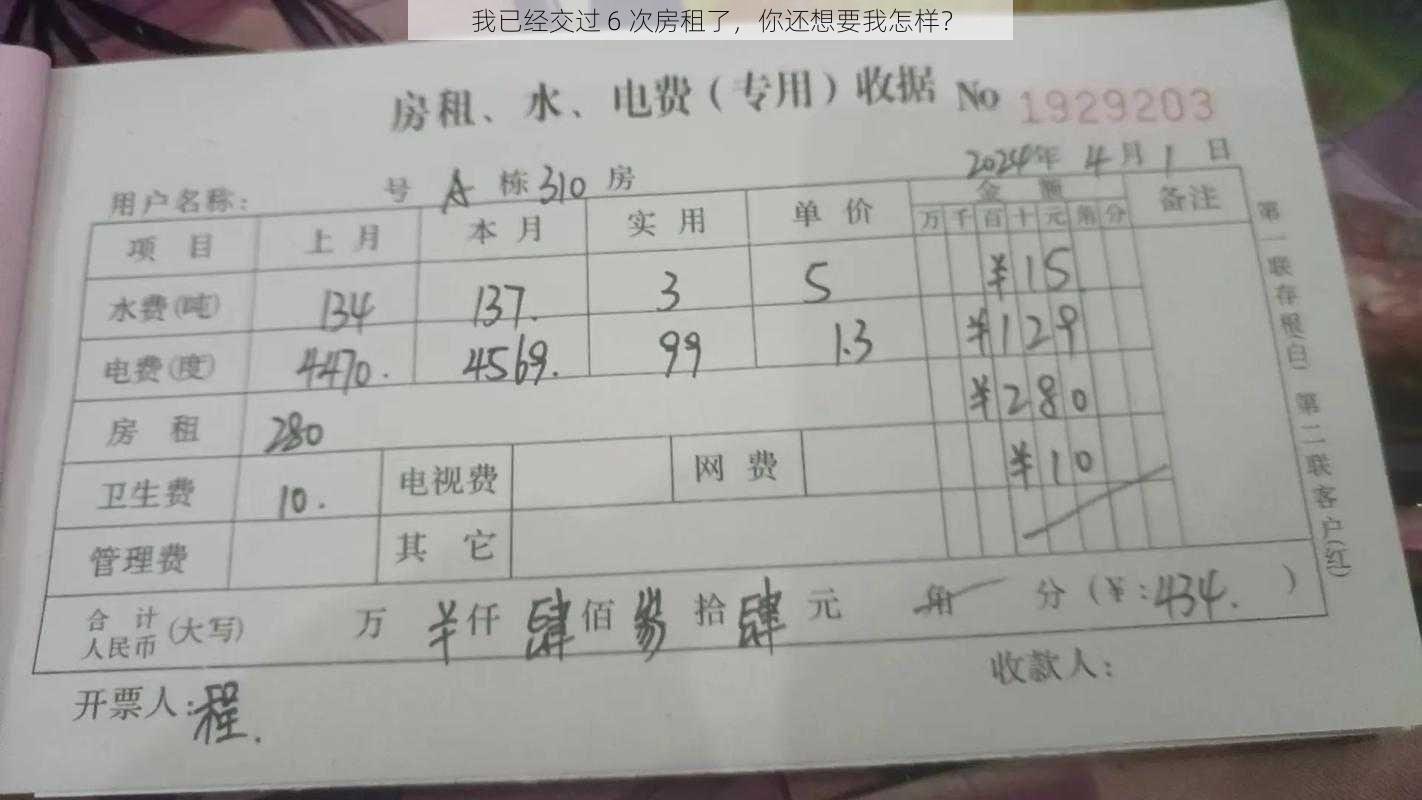 我已经交过 6 次房租了，你还想要我怎样？
房租、水、电费（专用）收据 No 1929203
2024年 4月 1 日
用户名称： 号 A 栋 310 房
项 目 上 月 本 月 实 用 单 价 金 额 备注
万 千 百 十 元 角 分
水费(吨) 134 137. 3 5 ¥15
电费(度) 4470. 4569. 99 1.3 ¥129
房 租 280 ¥280
卫生费 10. 电视费 网 费 ¥10
管理费 其 它
合 计
人民币 (大写) 万 ¥仟 肆佰 叁拾 肆元 角 分 (¥:434. )
开票人:程. 收款人:
第一联存根(白) 第二联客户(红)